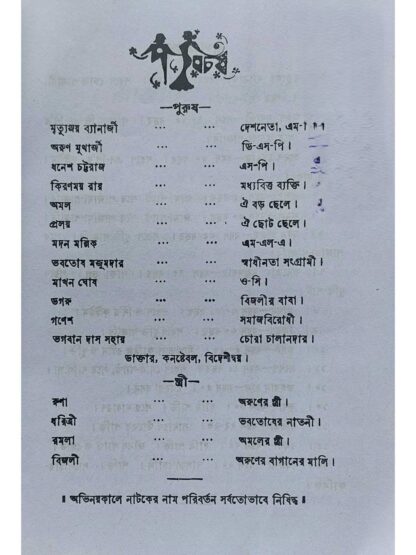 পরিচয়
—পুরুষ—
মৃত্যুঞ্জয় ব্যানার্জী ... ... দেশনেতা, এম-
অরুণ মুখার্জী ... ... ডি-এস-পি।
ধনেশ চট্টরাজ ... ... এস-পি।
কিরণময় রায় ... ... মধ্যবিত্ত ব্যক্তি।
অমল ... ... ঐ বড় ছেলে।
প্রলয় ... ... ঐ ছোট ছেলে।
মদন মল্লিক ... ... এম-এল-এ।
ভবতোষ মজুমদার ... ... স্বাধীনতা সংগ্রামী।
মাখন ঘোষ ... ... ও-সি।
ভগরু ... ... বিজলীর বাবা।
গণেশ ... ... সমাজবিরোধী।
ভগবান দাস সহায় ... ... চোরা চালানদার।
ডাক্তার, কনষ্টেবল, বিদেশীদ্বয়।
—স্ত্রী—
রুণা ... ... অরুণের স্ত্রী।
ধরিত্রী ... ... ভবতোষের নাতনী।
রমলা ... ... অমলের স্ত্রী।
বিজলী ... ... অরুণের বাগানের মালি।
॥ অভিনয়কালে নাটকের নাম পরিবর্তন সর্বতোভাবে নিষিদ্ধ॥